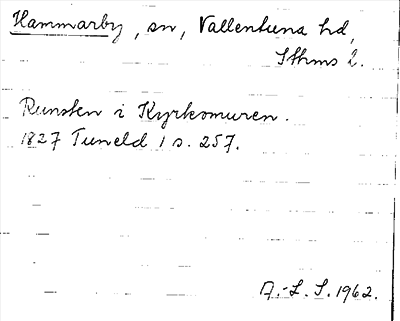 Hammarby, sn, Vallentuna hd,
Sthms l.
Runsten i Kyrkomuren.
1827 Tuneld 1 s. 257.
A.-L. S. 1962.